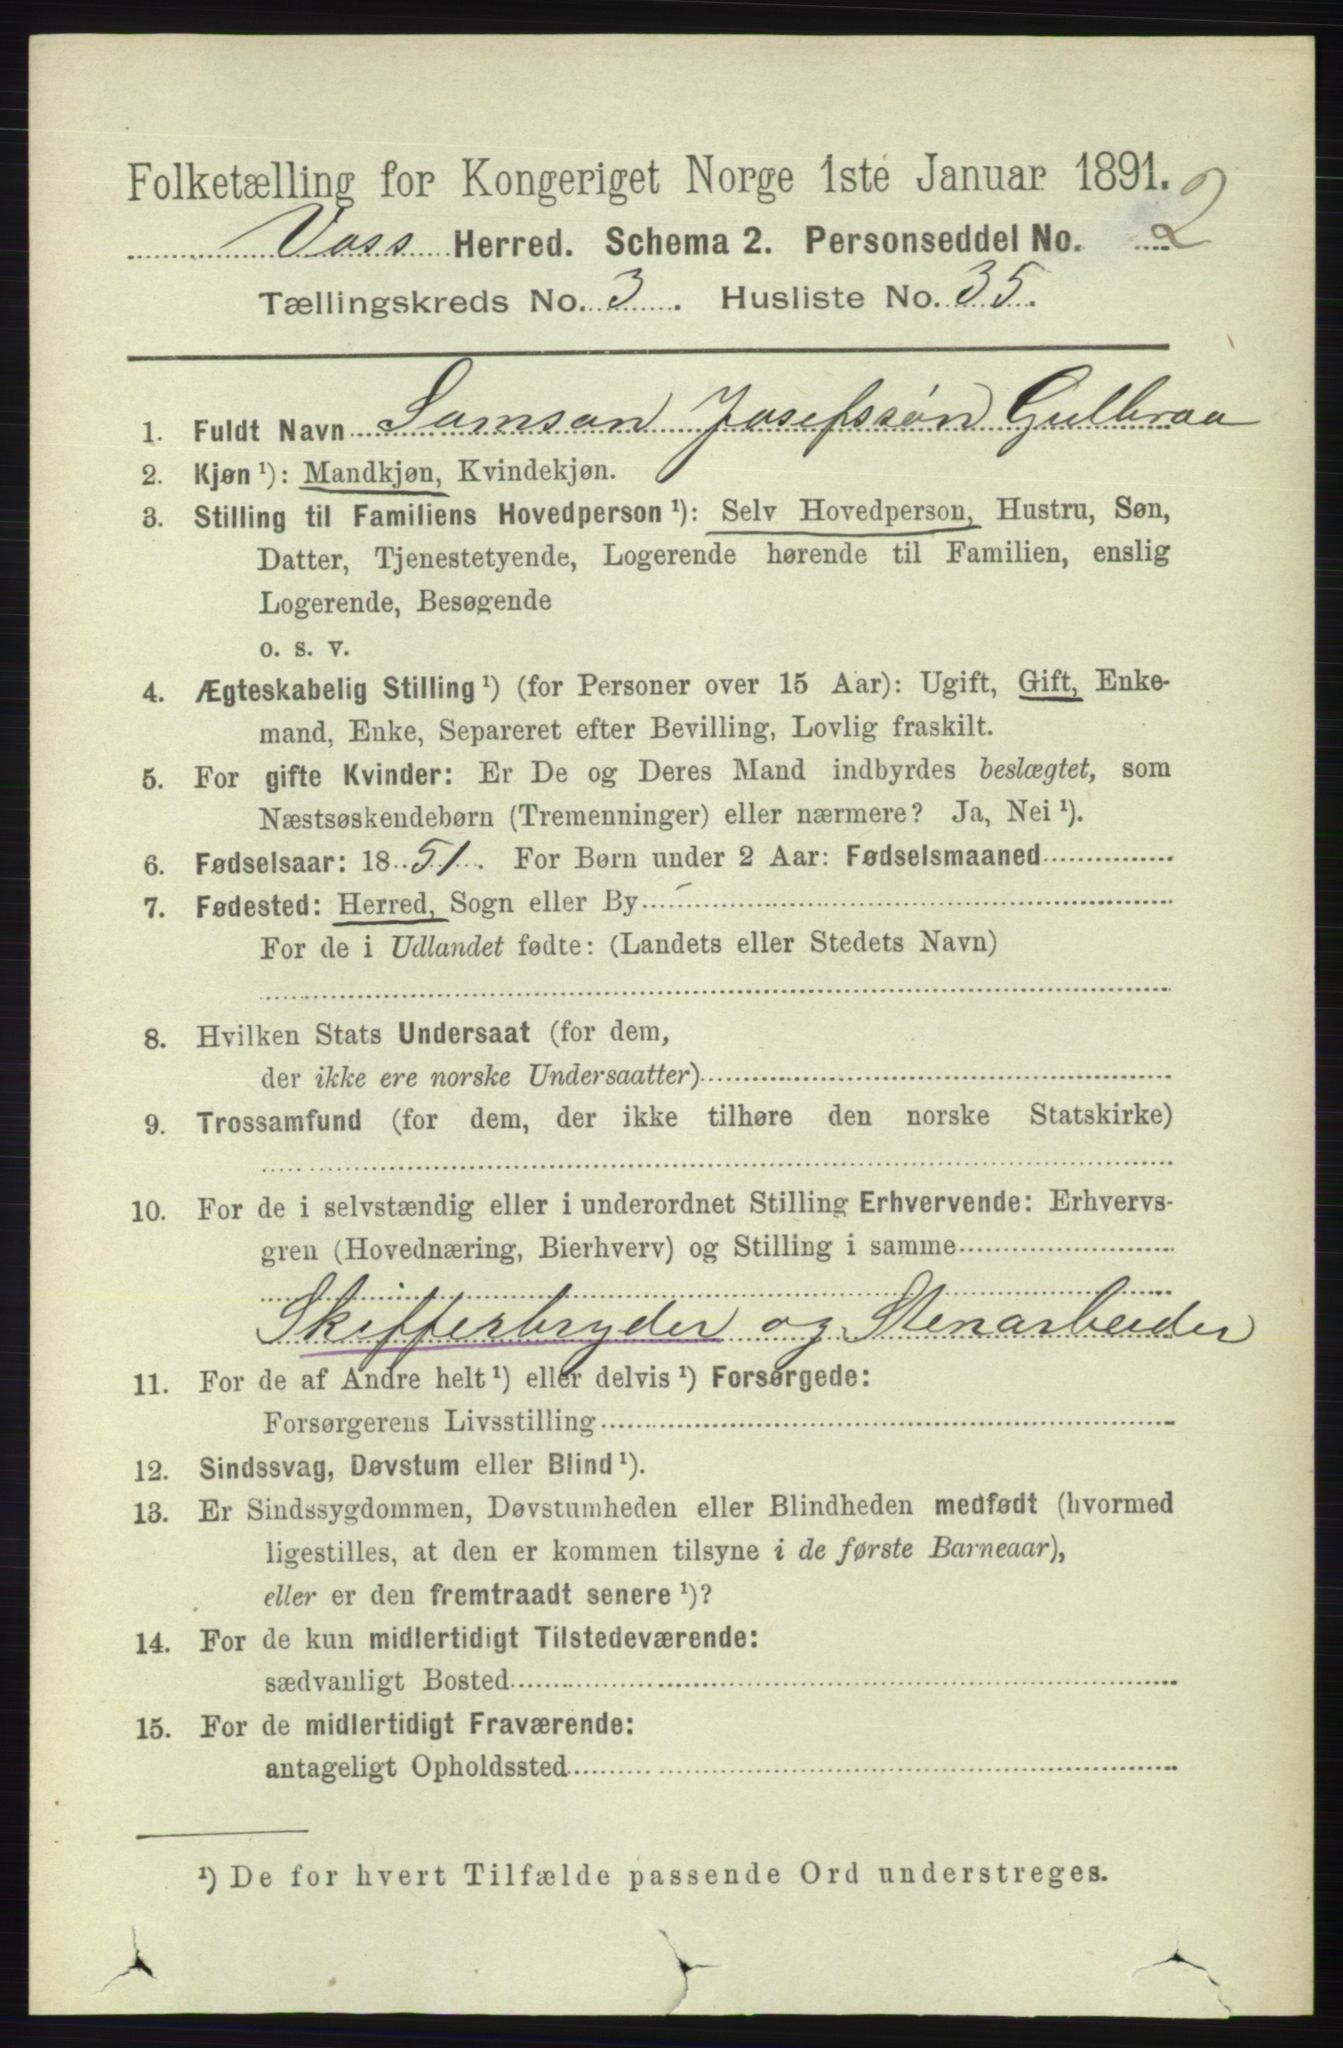 Folketælling for Kongeriget Norge 1ste Januar 1891.
Voss Herred. Schema 2. Personseddel No. 2
Tællingskreds No. 3. Husliste No. 35.
1. Fuldt Navn Samson Josefssøn Gulbraa
2. Kjøn ¹): Mandkjøn, Kvindekjøn.
3. Stilling til Familiens Hovedperson ¹): Selv Hovedperson, Hustru, Søn,
Datter, Tjenestetyende, Logerende hørende til Familien, enslig
Logerende, Besøgende
o. s. v.
4. Ægteskabelig Stilling ¹) (for Personer over 15 Aar): Ugift, Gift, Enke-
mand, Enke, Separeret efter Bevilling, Lovlig fraskilt.
5. For gifte Kvinder: Er De og Deres Mand indbyrdes beslægtet, som
Næstsøskendebørn (Tremenninger) eller nærmere? Ja, Nei ¹).
6. Fødselsaar: 1851. For Børn under 2 Aar: Fødselsmaaned
7. Fødested: Herred, Sogn eller By
For de i Udlandet fødte: (Landets eller Stedets Navn)
8. Hvilken Stats Undersaat (for dem,
der ikke ere norske Undersaatter)
9. Trossamfund (for dem, der ikke tilhøre den norske Statskirke)
10. For de i selvstændig eller i underordnet Stilling Erhvervende: Erhvervs-
gren (Hovednæring, Bierhverv) og Stilling i samme
Skifferbryder og Stenarbeider
11. For de af Andre helt ¹) eller delvis ¹) Forsørgede:
Forsørgerens Livsstilling
12. Sindssvag, Døvstum eller Blind ¹).
13. Er Sindssygdommen, Døvstumheden eller Blindheden medfødt (hvormed
ligestilles, at den er kommen tilsyne i de første Barneaar),
eller er den fremtraadt senere ¹)?
14. For de kun midlertidigt Tilstedeværende:
sædvanligt Bosted
15. For de midlertidigt Fraværende:
antageligt Opholdssted
¹) De for hvert Tilfælde passende Ord understreges.